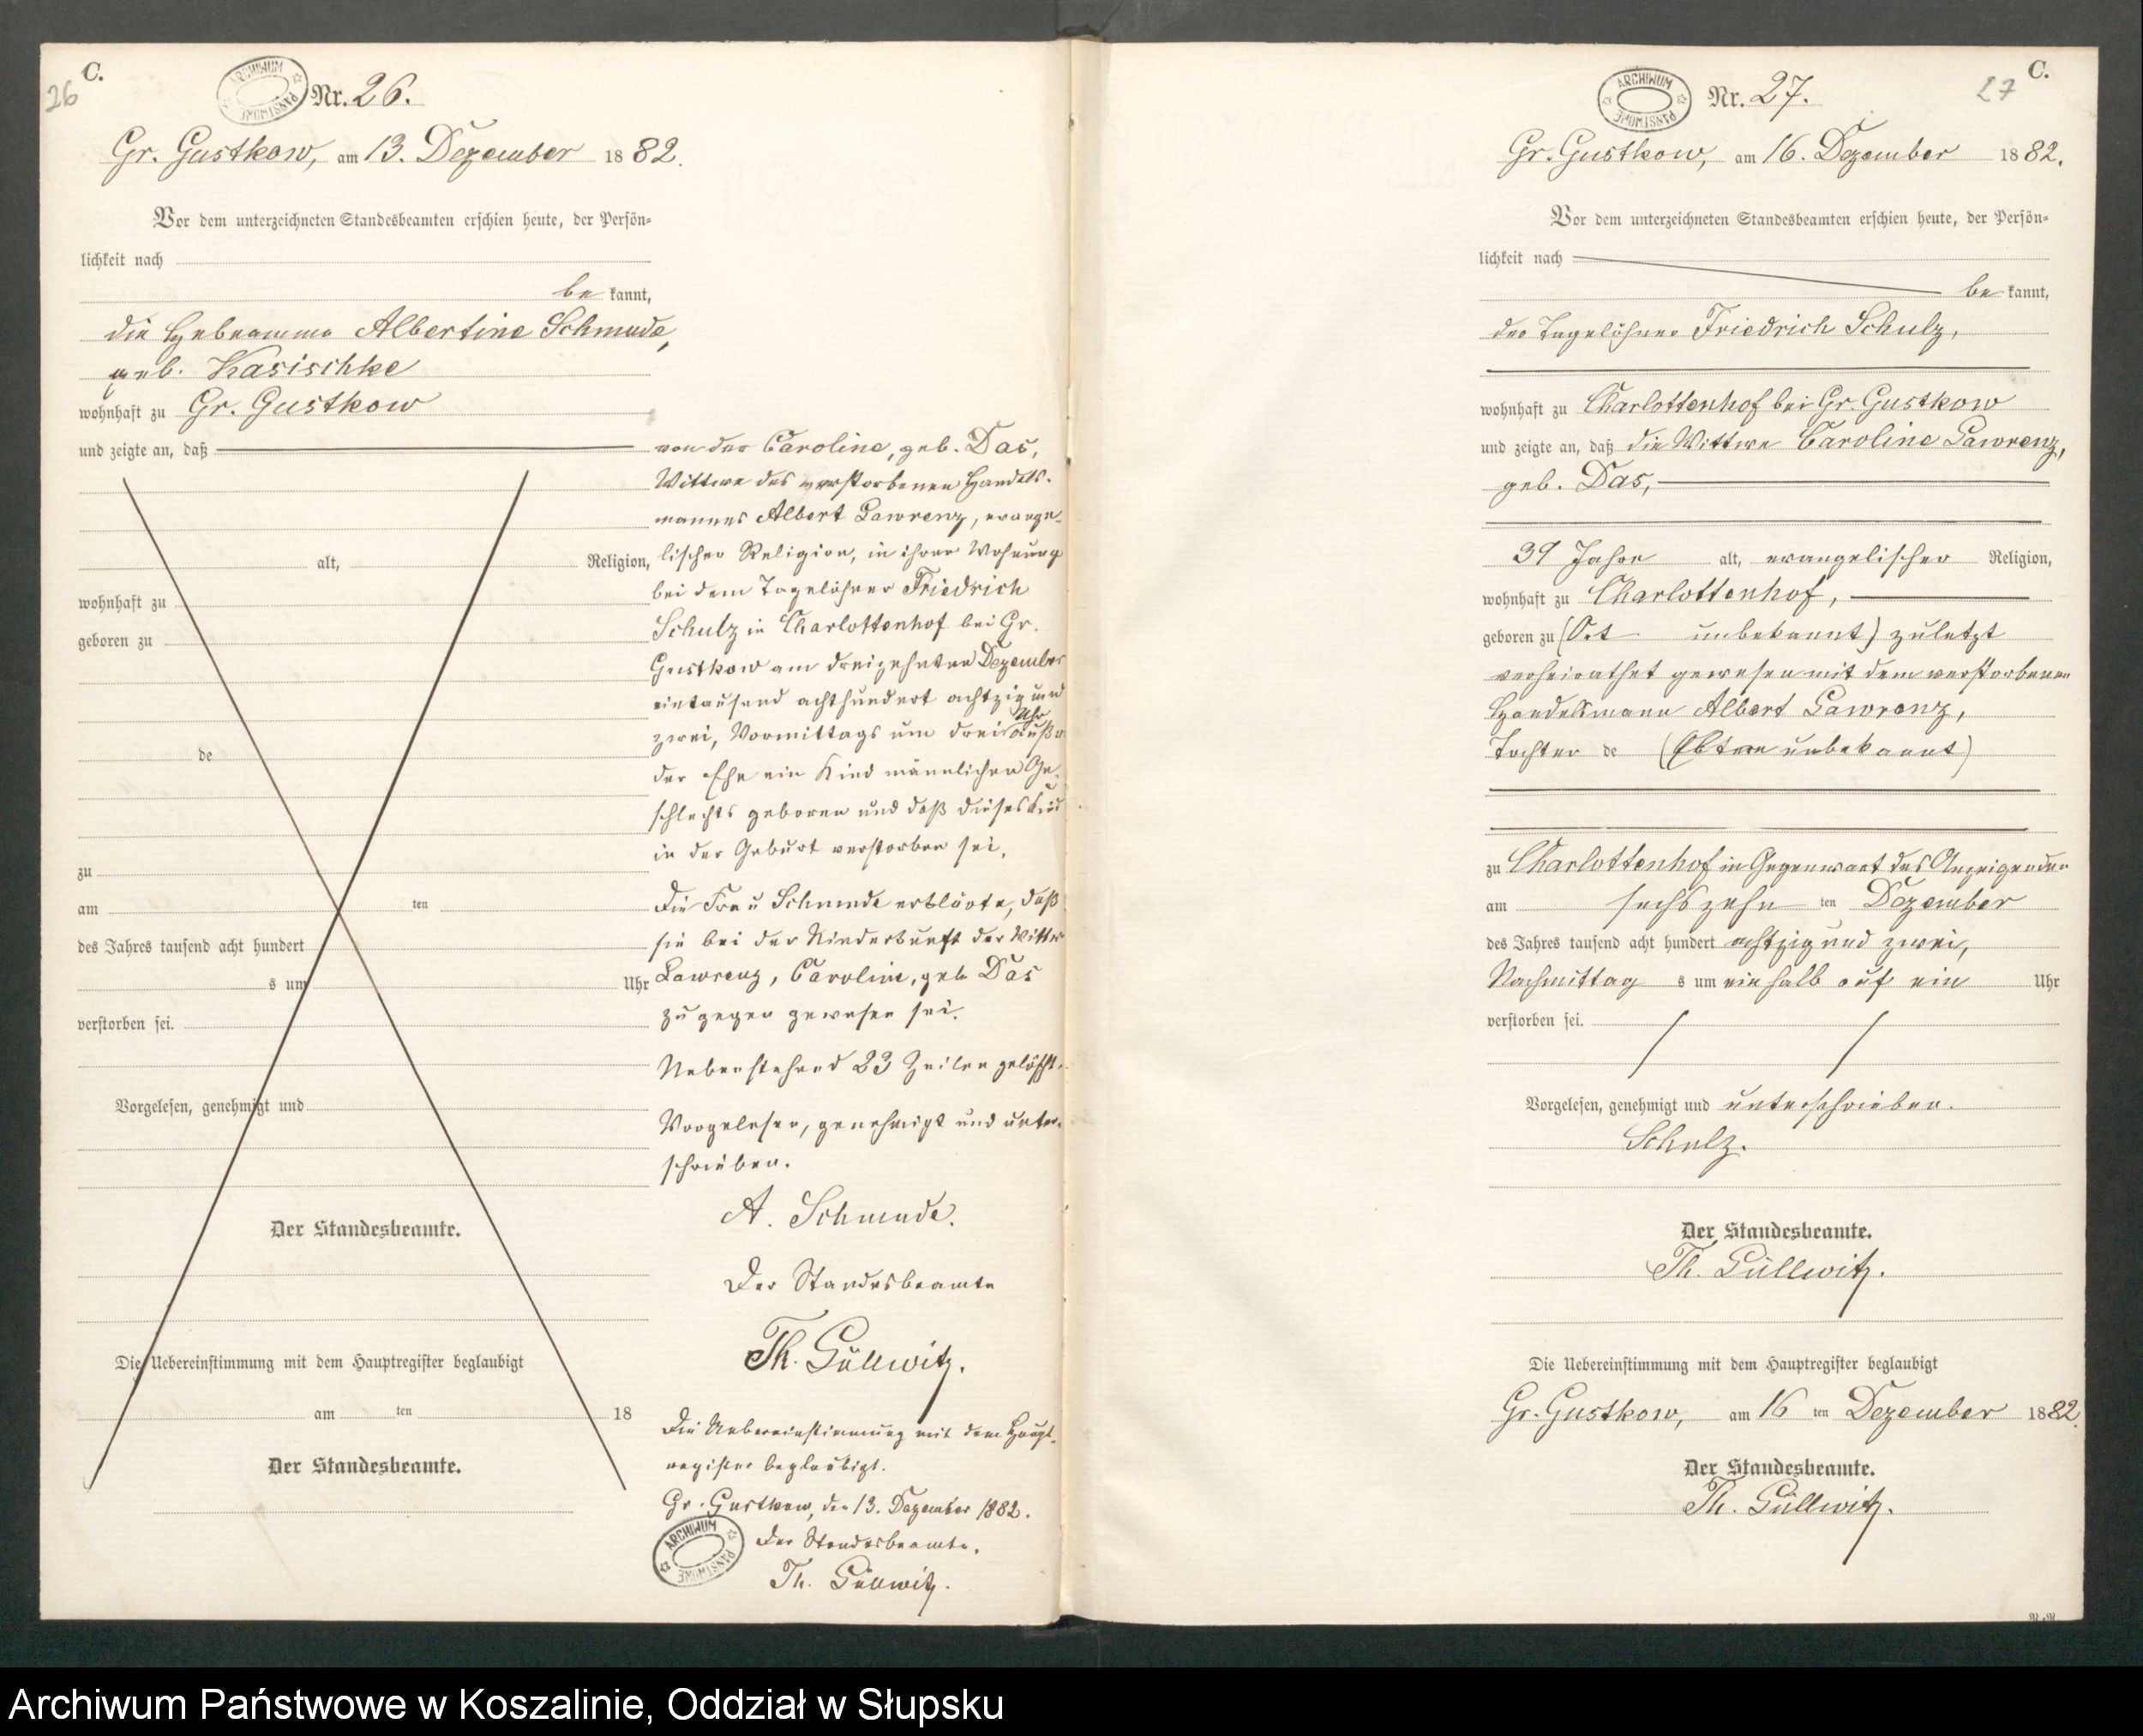 C.
26
ARCHIWUM PAŃSTWOWE
Nr. 26.
Gr. Gustkow, am 13. Dezember 1882.
Vor dem unterzeichneten Standesbeamten erschien heute, der Persön-
lichkeit nach
be kannt,
die Hebeamme Albertine Schmude,
geb. Kasischke
wohnhaft zu Gr. Gustkow
und zeigte an, daß
alt, Religion,
wohnhaft zu
geboren zu
de
zu
am ten
des Jahres tausend acht hundert
s um Uhr
verstorben sei.
Vorgelesen, genehmigt und
Der Standesbeamte.
Die Uebereinstimmung mit dem Hauptregister beglaubigt
am ten 18
Der Standesbeamte.
von der Caroline, geb. Das,
Wittwe des verstorbenen Handels-
mannes Albert Lawrenz, evange-
lischer Religion, in ihrer Wohnung
bei dem Tagelöhner Friedrich
Schulz in Charlottenhof bei Gr.
Gustkow am dreizehnten Dezember
eintausend achthundert achtzig und
zwei, Vormittags um drei Uhr außer
der Ehe ein Kind männlichen Ge-
schlechts geboren und daß dieses Kind
in der Geburt verstorben sei.
Die Frau Schmude erklärte, daß
sie bei der Niederkunft der Wittwe
Lawrenz, Caroline, geb. Das
zugegen gewesen sei.
Nebenstehend 23 Zeilen gelöscht.
Vorgelesen, genehmigt und unter-
schrieben.
A. Schmude.
Der Standesbeamte
Th. Güllwitz.
Die Uebereinstimmung mit dem Haupt-
register beglaubigt.
Gr. Gustkow, den 13. Dezember 1882.
Der Standesbeamte.
Th. Güllwitz.
ARCHIWUM PAŃSTWOWE
C.
27
ARCHIWUM PAŃSTWOWE
Nr. 27.
Gr. Gustkow, am 16. Dezember 1882.
Vor dem unterzeichneten Standesbeamten erschien heute, der Persön-
lichkeit nach
be kannt,
der Tagelöhner Friedrich Schulz,
wohnhaft zu Charlottenhof bei Gr. Gustkow
und zeigte an, daß die Wittwe Caroline Lawrenz,
geb. Das,
39 Jahre alt, evangelischer Religion,
wohnhaft zu Charlottenhof,
geboren zu (Ort unbekannt) zuletzt
verheirathet gewesen mit dem verstorbenen
Handelsmann Albert Lawrenz,
Tochter de (Eltern unbekannt)
zu Charlottenhof in Gegenwart des Anzeigenden
am sechszehn ten Dezember
des Jahres tausend acht hundert achtzig und zwei,
Nachmittag s um ein halb auf ein Uhr
verstorben sei.
Vorgelesen, genehmigt und unterschrieben.
Schulz.
Der Standesbeamte.
Th. Güllwitz.
Die Uebereinstimmung mit dem Hauptregister beglaubigt
Gr. Gustkow, am 16 ten Dezember 1882.
Der Standesbeamte.
Th. Güllwitz.
Archiwum Państwowe w Koszalinie, Oddział w Słupsku